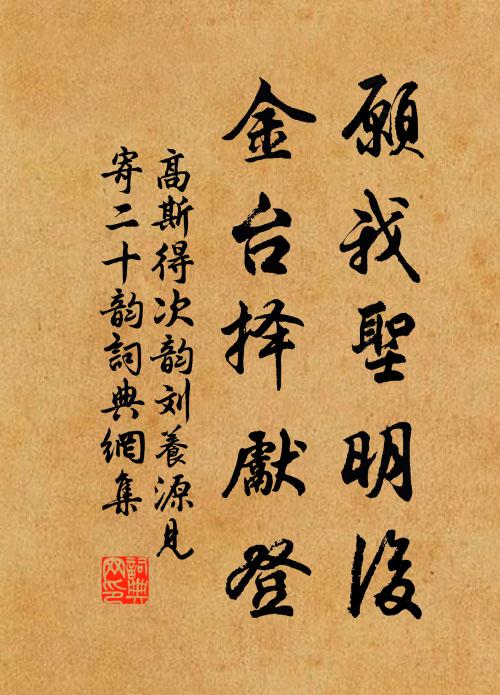 願我聖明後
金台择獻登
高斯得次韵刘養源見
寄二十韵詞典網集
詞典网印